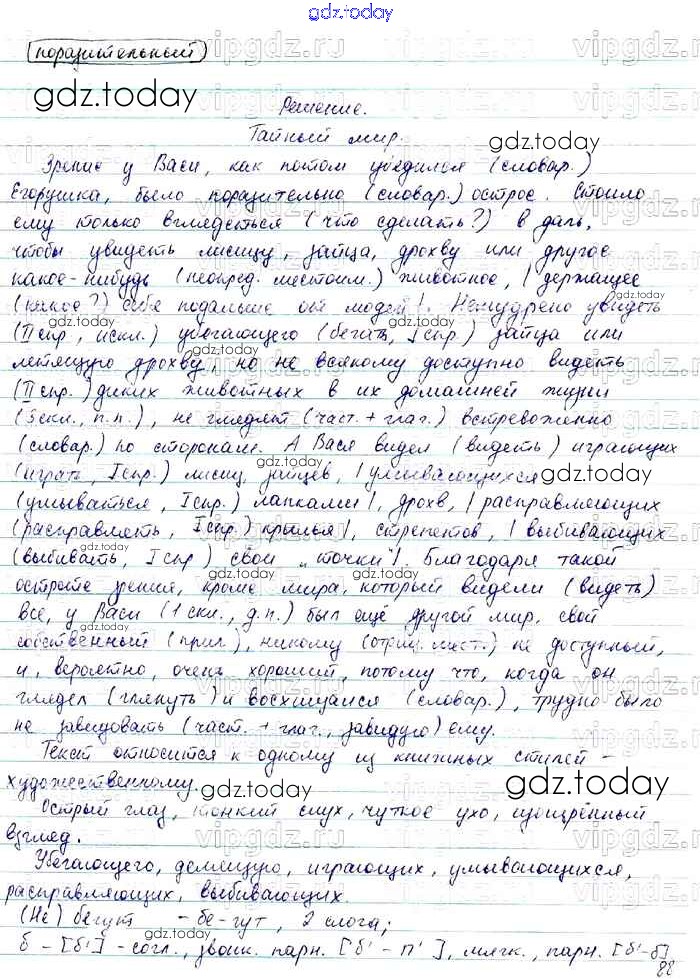 gdz.today
(поразительный)
gdz.today
Решение.
Тайный мир.
gdz.today
Зрение у Васи, как потом убедился (словар.)
Егорушка, было поразительно (словар.) острое. Стоило
ему только вглядеться (что сделать?) в даль,
чтобы увидеть лисицу, зайца, дрохву или другое
какое-нибудь (неопред. местоим.) животное, | держащее
(какое?) себя подальше от людей |. Немудрено увидеть
(II спр., искл.) убегающего (бегать, I спр.) зайца или
летящую дрохву, но не всякому доступно видеть
(II спр.) диких животных в их домашней жизни
(3 скл., п.п.), не глядят (част. + глаг.) встревоженно
(словар.) по сторонам. А Вася видел (видеть) играющих
(играть, I спр.) лисиц, зайцев, | умывающихся
(умываться, I спр.) лапками |, дрохв, | расправляющих
(расправлять, I спр.) крылья |, стрепетов, | выбивающих
(выбивать, I спр) свои "точки" |. Благодаря такой
остроте зрения, кроме мира, который видели (видеть)
все, у Васи (1 скл., д.п.) был ещё другой мир, свой
собственный (прил.), никому (отриц. мест.) не доступный,
и, вероятно, очень хороший, потому что, когда он
глядел (глянуть) и восхищался (словар.), трудно было
не завидовать (част. + глаг., завидую) ему.
Текст относится к одному из книжных стилей –
художественному.
gdz.today
Острый глаз, тонкий слух, чуткое ухо, изощрённый
взгляд.
Убегающего, летящую, играющих, умывающихся,
расправляющих, выбивающих.
(Не) бегут – бе-гут, 2 слога;
б – [б'] – согл., звонк. парн. [б' – п'], мягк., парн. [б' – б]
88